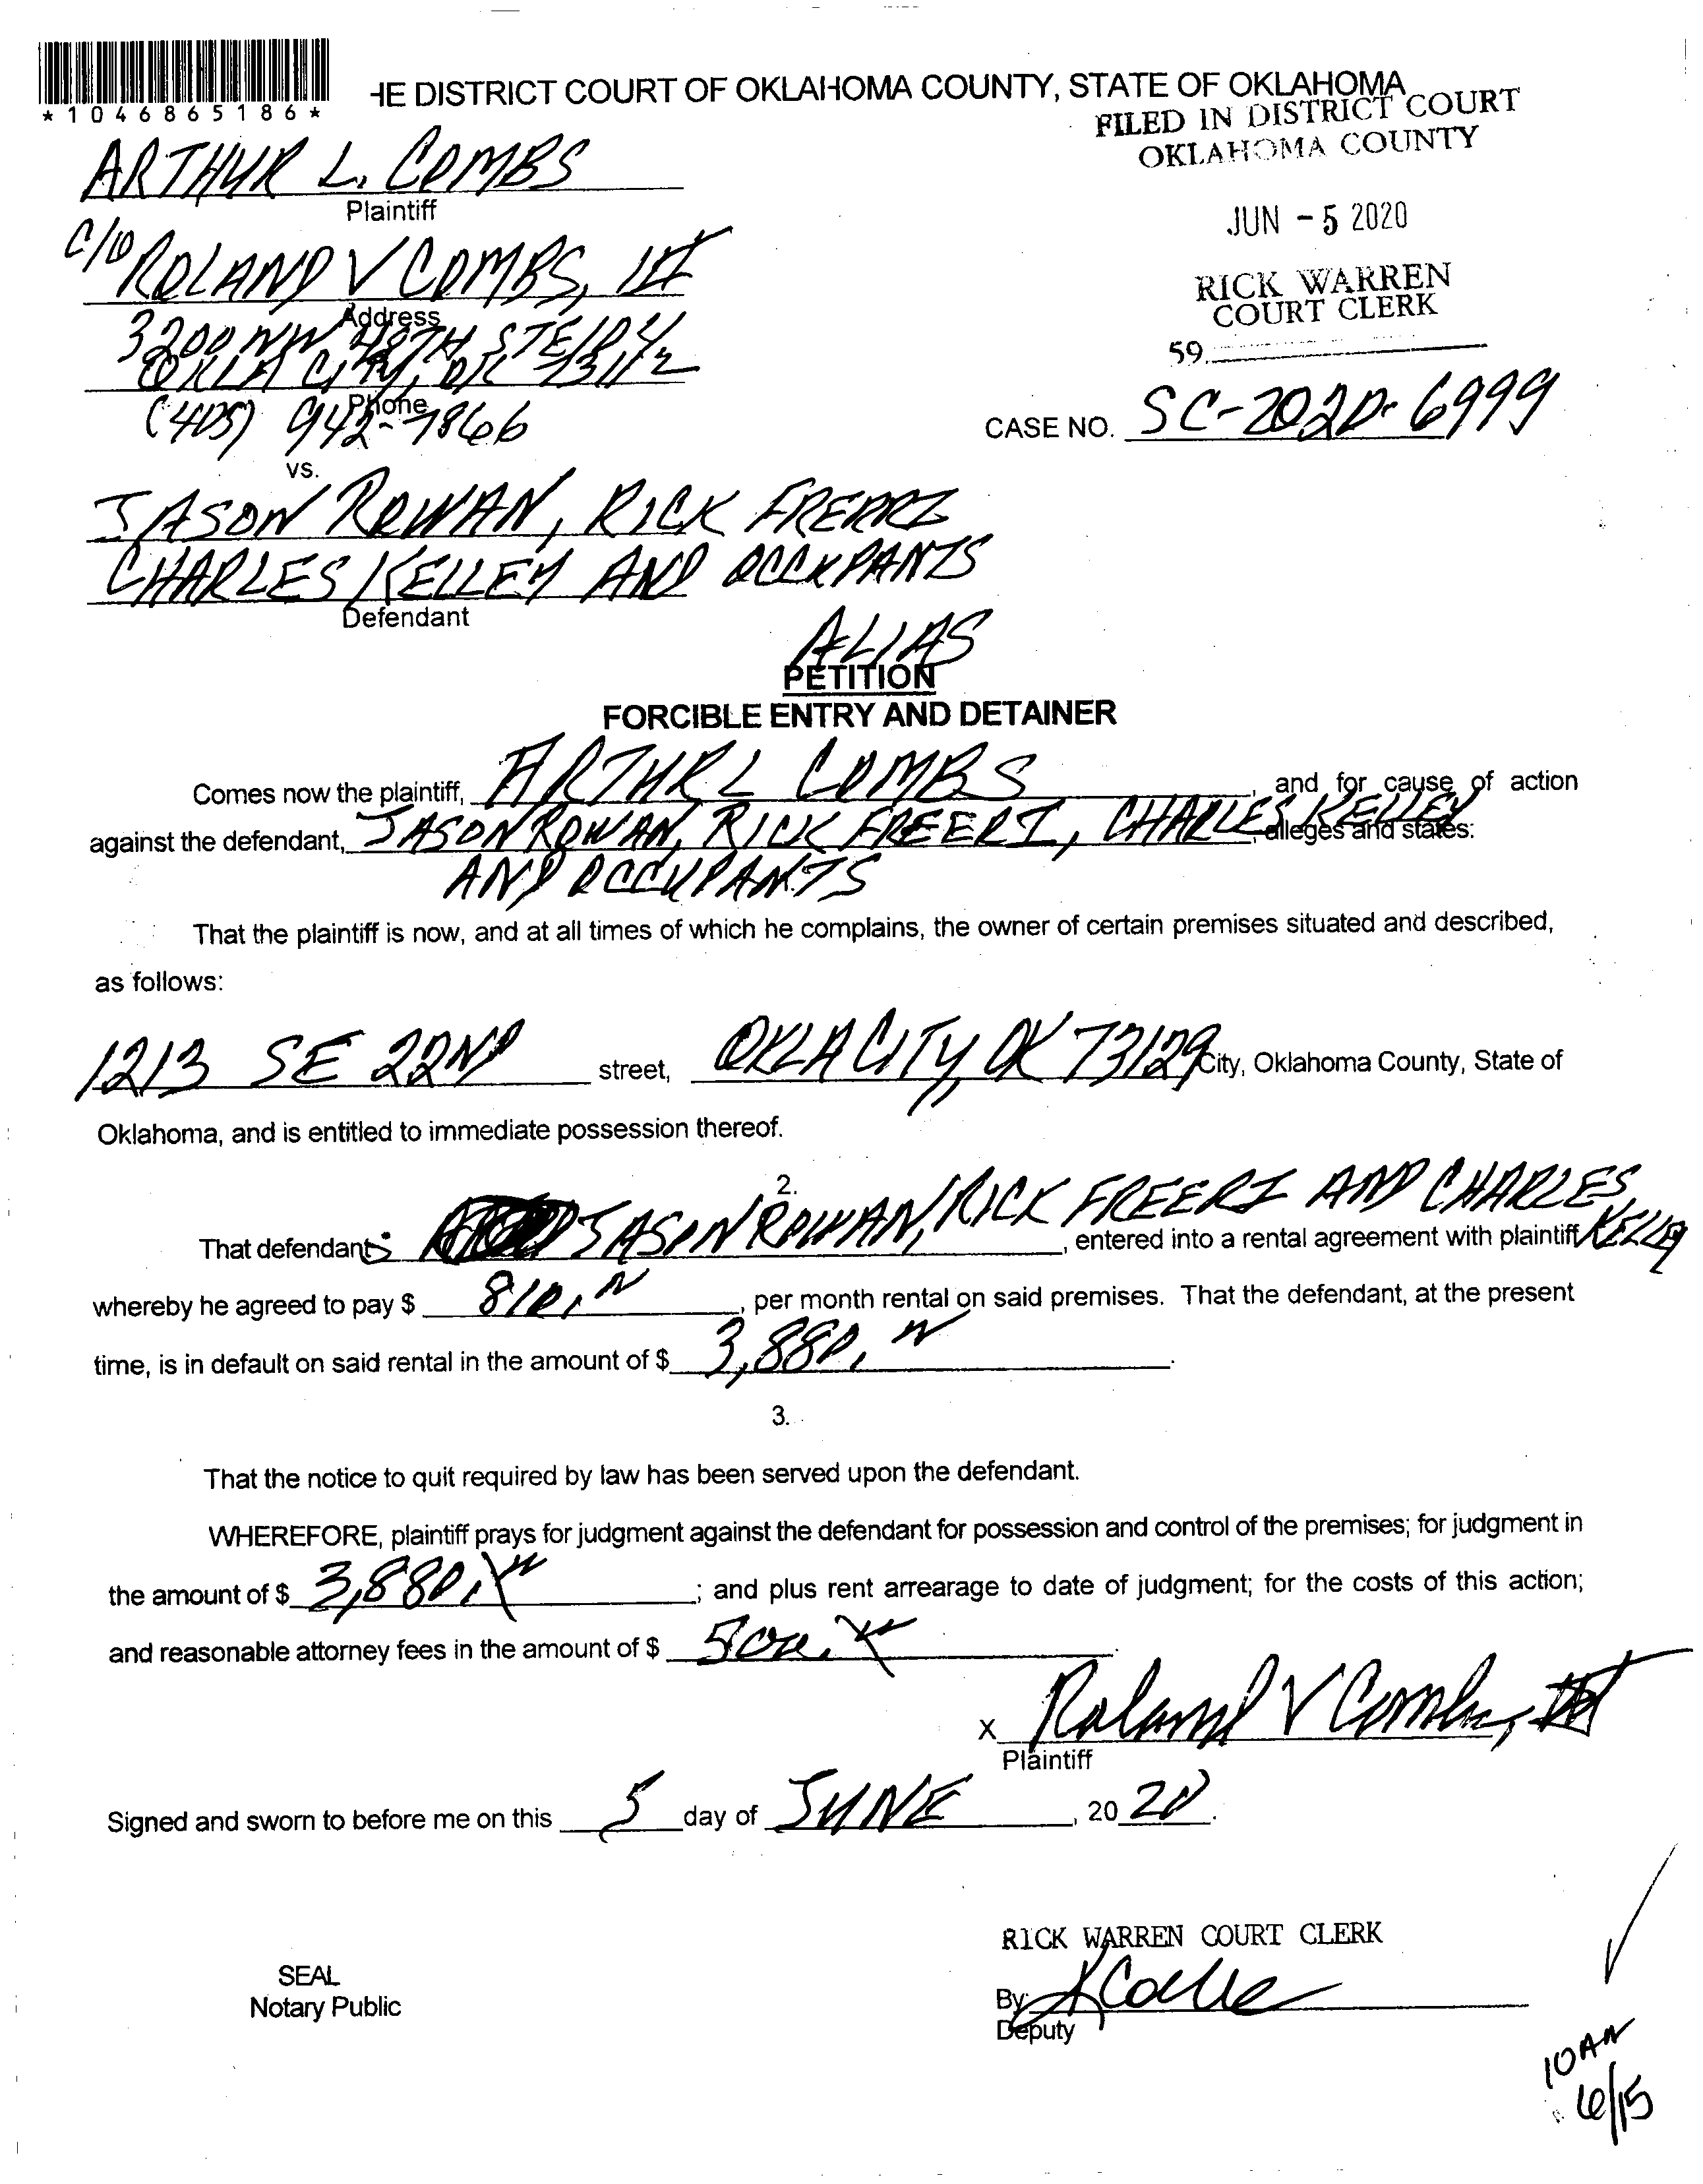 *1046865186*
HE DISTRICT COURT OF OKLAHOMA COUNTY, STATE OF OKLAHOMA
FILED IN DISTRICT COURT
OKLAHOMA COUNTY
ARTHUR L. COMBS
Plaintiff
JUN - 5 2020
C/O ROLAND V COMBS, III
Address
RICK WARREN
COURT CLERK
3200 NW 48TH STE 104
59.
OKLA CITY, OK 73112
Phone
(405) 942-7866
CASE NO. SC-2020-6999
vs.
JASON ROWAN, RICK FRERRI
CHARLES KELLEY AND OCCUPANTS
Defendant
ALIAS
PETITION
FORCIBLE ENTRY AND DETAINER
Comes now the plaintiff, ARTHUR L COMBS, and for cause of action
against the defendant, JASON ROWAN, RICK FREERI, CHARLES KELLEY, alleges and states:
AND OCCUPANTS
That the plaintiff is now, and at all times of which he complains, the owner of certain premises situated and described,
as follows:
1213 SE 22ND street, OKLA CITY, OK 73129 City, Oklahoma County, State of
Oklahoma, and is entitled to immediate possession thereof.
2.
That defendants JASON ROWAN, RICK FREERI AND CHARLES KELLEY, entered into a rental agreement with plaintiff
whereby he agreed to pay $ 810, per month rental on said premises. That the defendant, at the present
time, is in default on said rental in the amount of $ 3,880.
3.
That the notice to quit required by law has been served upon the defendant.
WHEREFORE, plaintiff prays for judgment against the defendant for possession and control of the premises; for judgment in
the amount of $ 3,880. ; and plus rent arrearage to date of judgment; for the costs of this action;
and reasonable attorney fees in the amount of $ 500.
X Roland V Combs, III
Plaintiff
Signed and sworn to before me on this 5 day of JUNE, 2020.
RICK WARREN COURT CLERK
SEAL
Notary Public
By:
Deputy
10AM
6/15